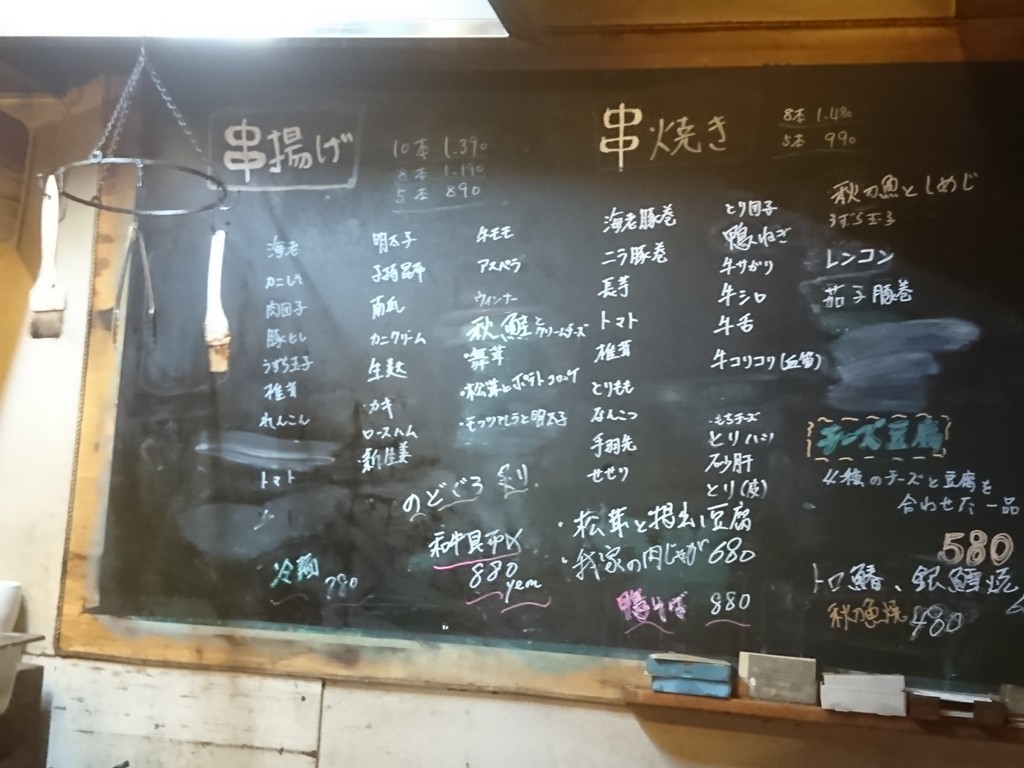 串揚げ
10本 1.390
8本 1.190
5本 890
海老
カニしそ
肉団子
豚ヒレ
うずら玉子
椎茸
れんこん
トマト
明太子
子持昆布
南瓜
カニクリーム
生麩
カキ
ロースハム
新生姜
牛モモ
アスパラ
ウィンナー
秋鮭とクリームチーズ
・舞茸
・松茸とポテトコロッケ
・モッツァレラと明太子
のどぐろ 炙り
880
yen
冷麺 790
串焼き
8本 1.480
5本 990
海老豚巻
ニラ豚巻
長芋
トマト
椎茸
とりもも
なんこつ
手羽先
せせり
とり団子
鴨ねぎ
牛サガリ
牛シロ
牛舌
牛コリコリ(血管)
・もちチーズ
とりハツ
砂肝
とり(皮)
秋刀魚としめじ
うずら玉子
レンコン
茄子豚巻
・松茸と揚出し豆腐
・我家の肉じゃが 680
鴨そば 880
チーズ豆腐
4種のチーズと豆腐を
合わせた一品
580
トロ鯖、銀鱈焼
秋刀魚焼 480